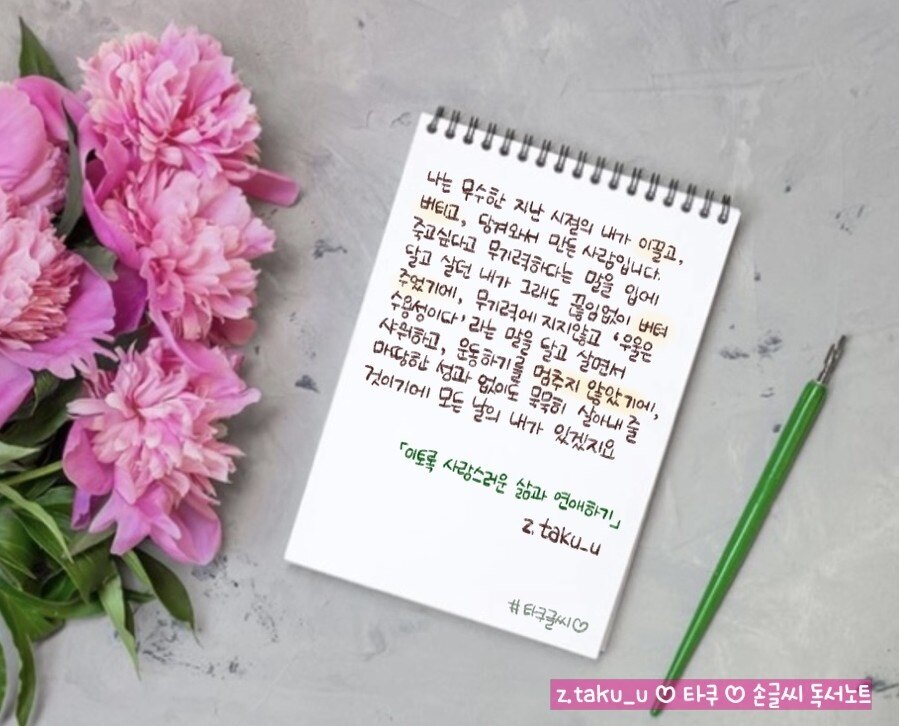 나는 무수한 지난 시절의 내가 이끌고,
버티고, 당겨와서 만든 사람입니다.
죽고싶다고 무기력하다는 말을 입에
달고 살던 내가 그래도 끊임없이 버텨
주었기에, 무기력에 지지않고 '우울은
수용성이다'라는 말을 달고 살면서
샤워하고, 운동하기를 멈추지 않았기에,
마땅한 성과 없이도 묵묵히 살아내 줄
것이기에 모든 날의 내가 있겠지요
「이토록 사랑스러운 삶과 연애하기」
z.taku_u
#타쿠글씨♡
z.taku_u ♡ 타쿠 ♡ 손글씨 독서노트